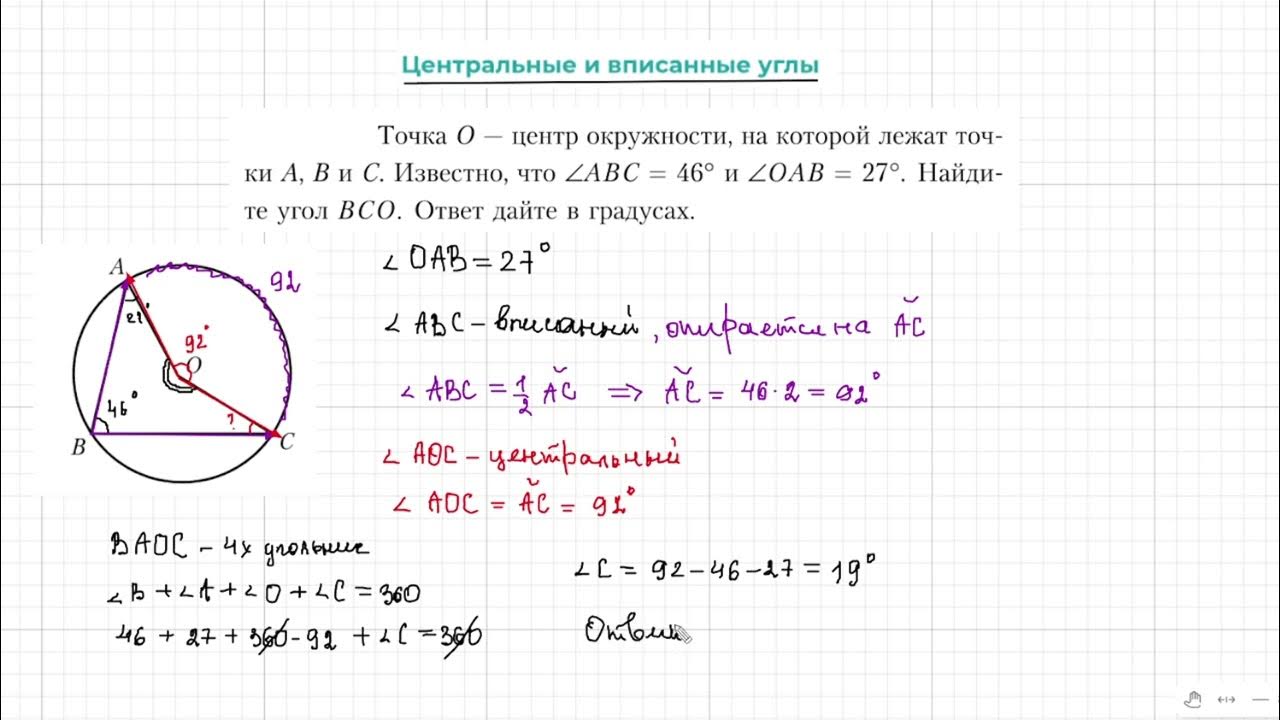 Центральные и вписанные углы
Точка O — центр окружности, на которой лежат точ-
ки A, B и C. Известно, что ∠ABC = 46° и ∠OAB = 27°. Найди-
те угол BCO. Ответ дайте в градусах.
∠ OAB = 27°
∠ ABC – вписанный, опирается на ◡AC
∠ ABC = 1/2 ◡AC ⇒ ◡AC = 46·2 = 92°
∠ AOC – центральный
∠ AOC = ◡AC = 92°
A
92
27°
92°
O
46°
?
B
C
BAOC – 4х угольник
∠B + ∠A + ∠O + ∠C = 360
46 + 27 + 360 – 92 + ∠C = 360
∠C = 92 – 46 – 27 = 19°